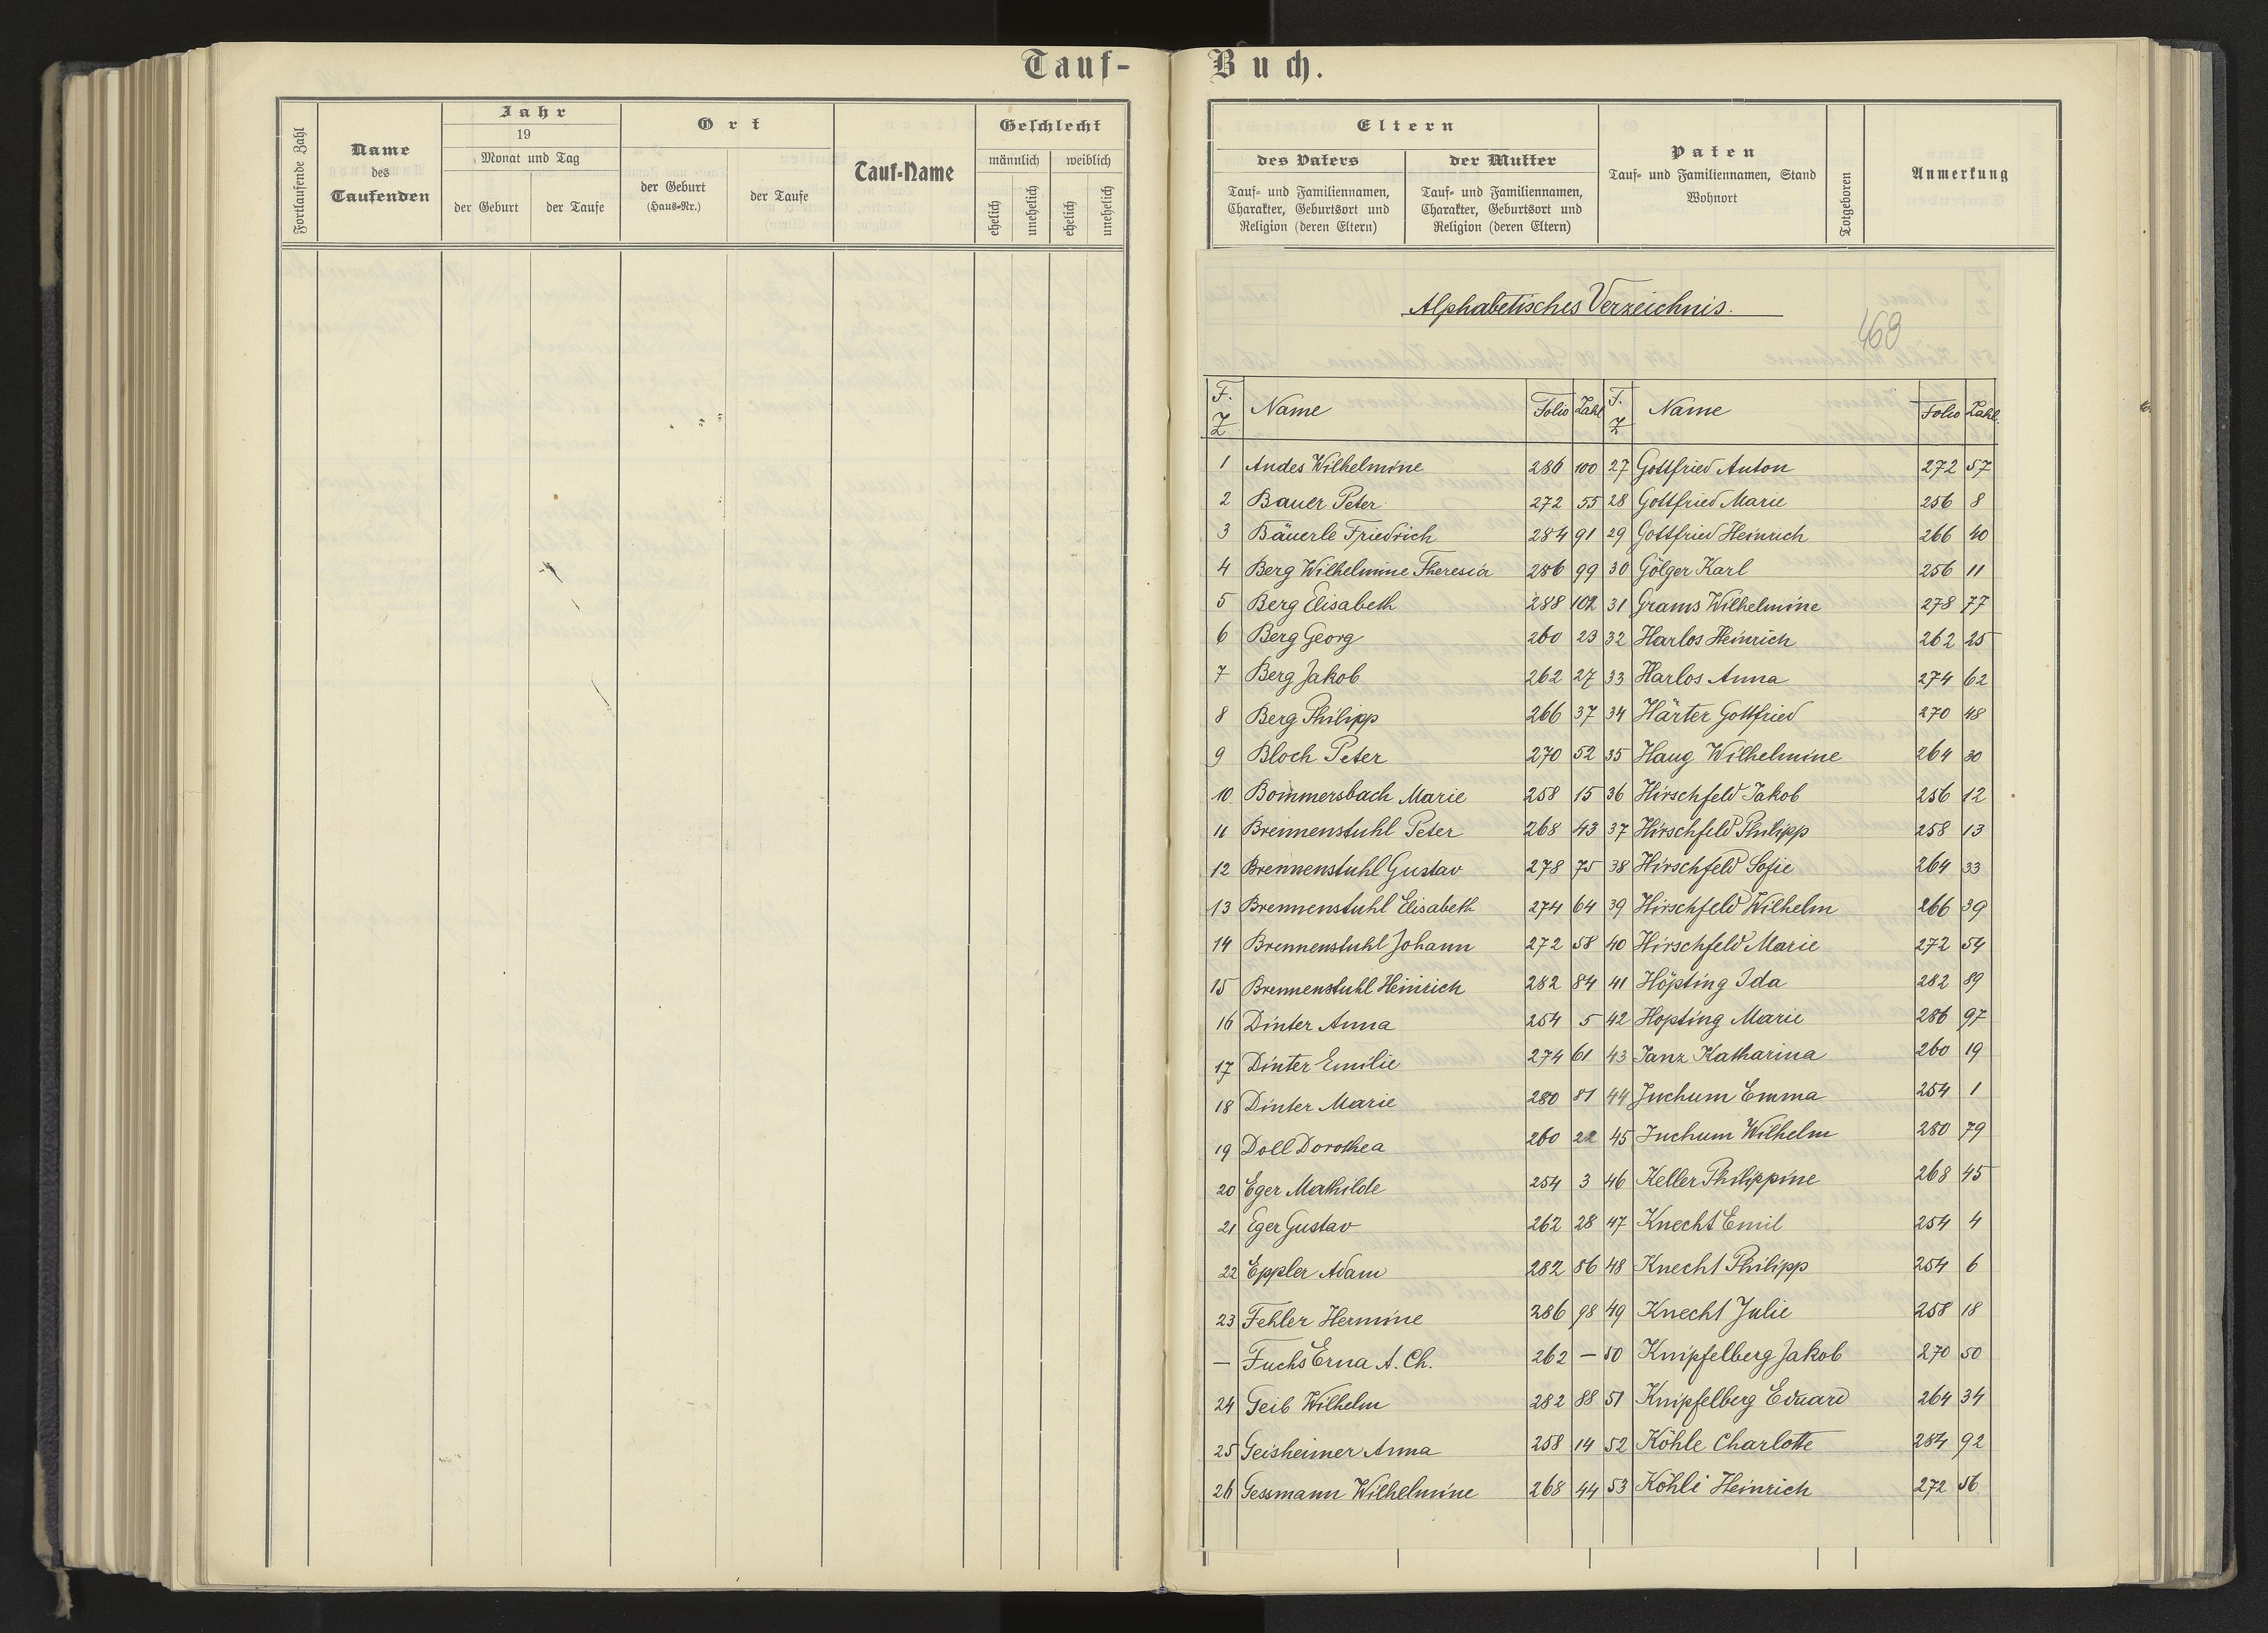 Tauf-
Buch.
Fortlaufende Zahl
Name
des
Taufenden
Jahr
19
Monat und Tag
der Geburt
der Taufe
Ort
der Geburt
(Haus-Nr.)
der Taufe
Tauf-Name
Geschlecht
männlich
weiblich
ehelich
unehelich
ehelich
unehelich
Eltern
des Vaters
Tauf- und Familiennamen,
Charakter, Geburtsort und
Religion (deren Eltern)
der Mutter
Tauf- und Familiennamen,
Charakter, Geburtsort und
Religion (deren Eltern)
Paten
Tauf- und Familiennamen, Stand
Wohnort
Totgeboren
Anmerkung
Alphabetisches Verzeichnis.
F. Z Name Folio Zahl F. Z Name Folio Zahl.
1 Andes Wilhelmine 286 100 27 Gottfried Anton 272 57
2 Bauer Peter 272 55 28 Gottfried Marie 256 8
3 Bäuerle Friedrich 284 91 29 Gottfried Heinrich 266 40
4 Berg Wilhelmine Theresia 286 99 30 Gölger Karl 256 11
5 Berg Elisabeth 288 102 31 Grams Wilhelmine 278 77
6 Berg Georg 260 23 32 Harlos Heinrich 262 25
7 Berg Jakob 262 27 33 Harlos Anna 274 62
8 Berg Philipp 266 37 34 Härter Gottfried 270 48
9 Bloch Peter 270 52 35 Haug Wilhelmine 264 30
10. Bommersbach Marie 258 15 36 Hirschfeld Jakob 256 12
11 Brennenstuhl Peter 268 43 37 Hirschfeld Philipp 258 13
12 Brennenstuhl Gustav 278 75 38 Hirschfeld Sofie 264 33
13 Brennenstuhl Elisabeth 274 64 39 Hirschfeld Wilhelm 266 39
14 Brennenstuhl Johann 272 58 40 Hirschfeld Marie 272 54
15 Brennenstuhl Heinrich 282 84 41 Höpting Ida 282 89
16 Dinter Anna 254 5 42 Hopting Marie 286 97
17 Dinter Emilie 274 61 43 Janz Katharina 260 19
18 Dinter Marie 280 81 44 Juchum Emma 254 1
19 Doll Dorothea 260 22 45 Juchum Wilhelm 280 79
20 Eger Mathilde 254 3 46 Keller Philippine 268 45
21 Eger Gustav 262 28 47 Knecht Emil 254 4
22 Eppler Adam 282 86 48 Knecht Philipp 254 6
23 Fehler Hermine 286 98 49 Knecht Julie 258 18
— Fuchs Erna A. Ch. 262 — 50 Knipfelberg Jakob 270 50
24 Geib Wilhelm 282 88 51 Knipfelberg Eduard 264 34
25 Geisheimer Anna 258 14 52 Köhle Charlotte 284 92
26 Gessmann Wilhelmine 268 44 53 Köhli Heinrich 272 56.